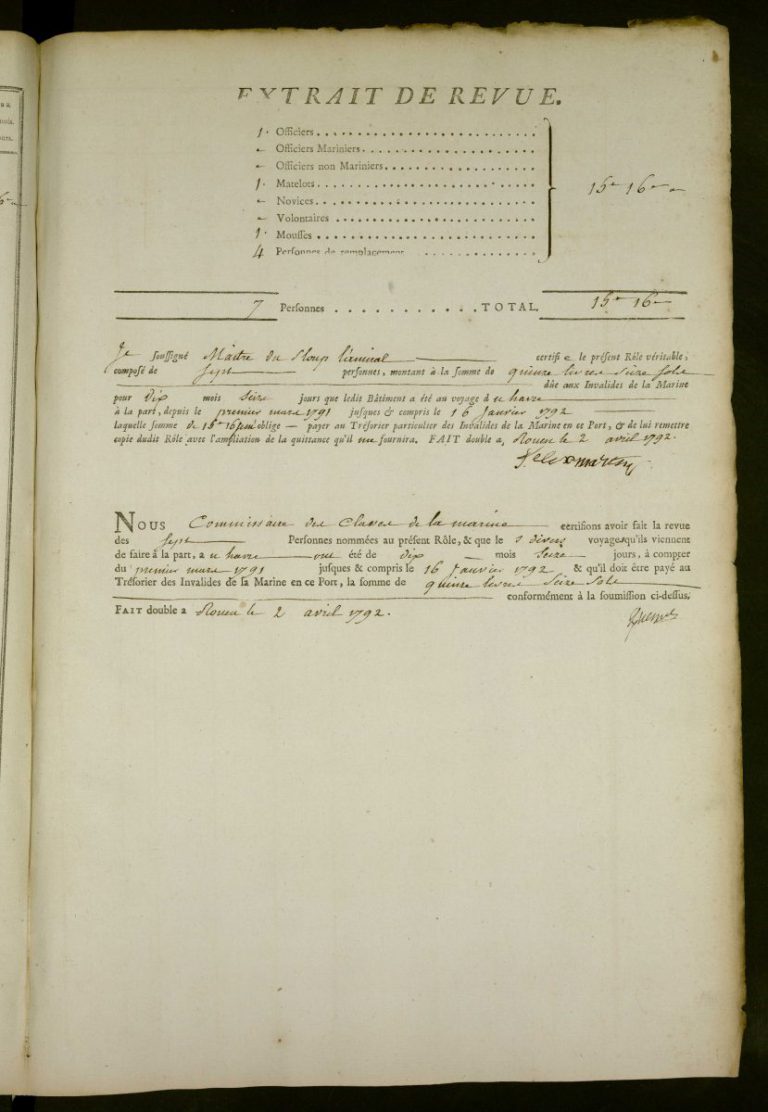 EXTRAIT DE REVUE.
1. Officiers
- Officiers Mariniers
- Officiers non Mariniers
1. Matelots
- Novices
- Volontaires
1. Mousses
4 Personnes de remplacement
15# 16s
7 Personnes TOTAL. 15# 16s
Je soussigné Maitre du Sloup certifie le présent Rôle véritable;
composé de sept personnes, montant à la somme de quinze livres seize sols
dûe aux Invalides de la Marine
pour dix mois seize jours que ledit Bâtiment a été au voyage du havre
à la part, depuis le premier mars 1791 jusques & compris le 16 Janvier 1792
laquelle somme de 15# 16s oblige payer au Trésorier particulier des Invalides de la Marine en ce Port, & de lui remettre
copie dudit Rôle avec l'ampliation de la quittance qu'il me fournira. FAIT double a, Rouen le 2 avril 1792.
NOUS Commissaire des Classes de la marine certifions avoir fait la revue
des sept Personnes nommées au présent Rôle, & que le s divers voyages qu'ils viennent
de faire à la part, au havre ont été de dix mois seize jours, à compter
du premier mars 1791 jusques & compris le 16 Janvier 1792 & qu'il doit être payé au
Trésorier des Invalides de la Marine en ce Port, la somme de quinze livres seize sols
conformément à la soumission ci-dessus.
FAIT double a Rouen le 2 avril 1792.